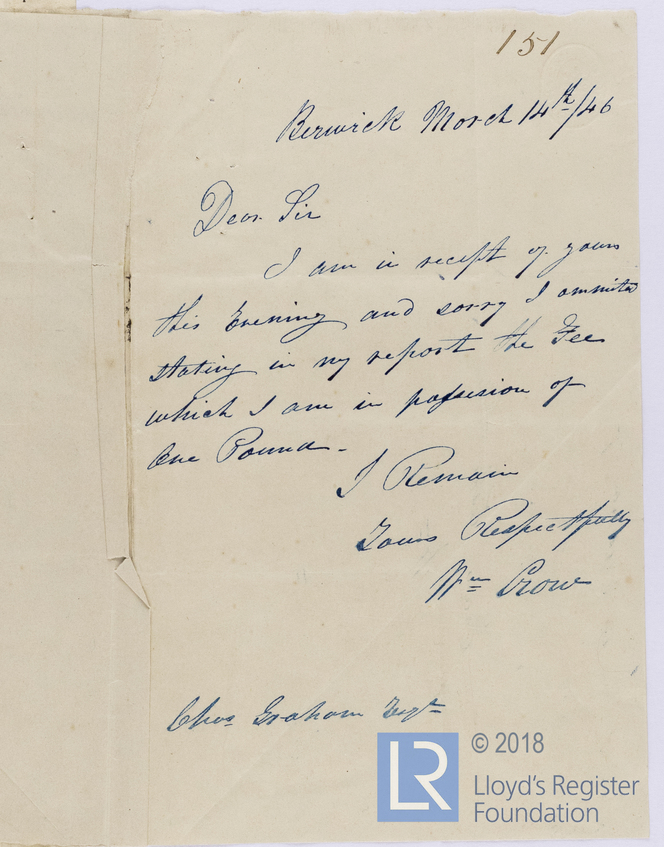 151
Berwick March 14th/46
Dear Sir
I am in receipt of yours
this Evening and sorry I ommited
stating in my report the Fee
which I am in possesion of
One Pound -
I Remain
Yours Respectfully
Wm Crow
Chas Graham Esqr
© 2018
LR
Lloyd's Register
Foundation